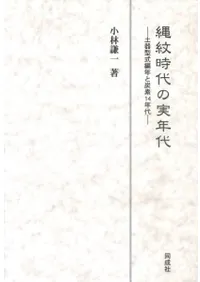 縄紋時代の実年代
―土器型式編年と炭素14年代―
小林謙一 著
同成社